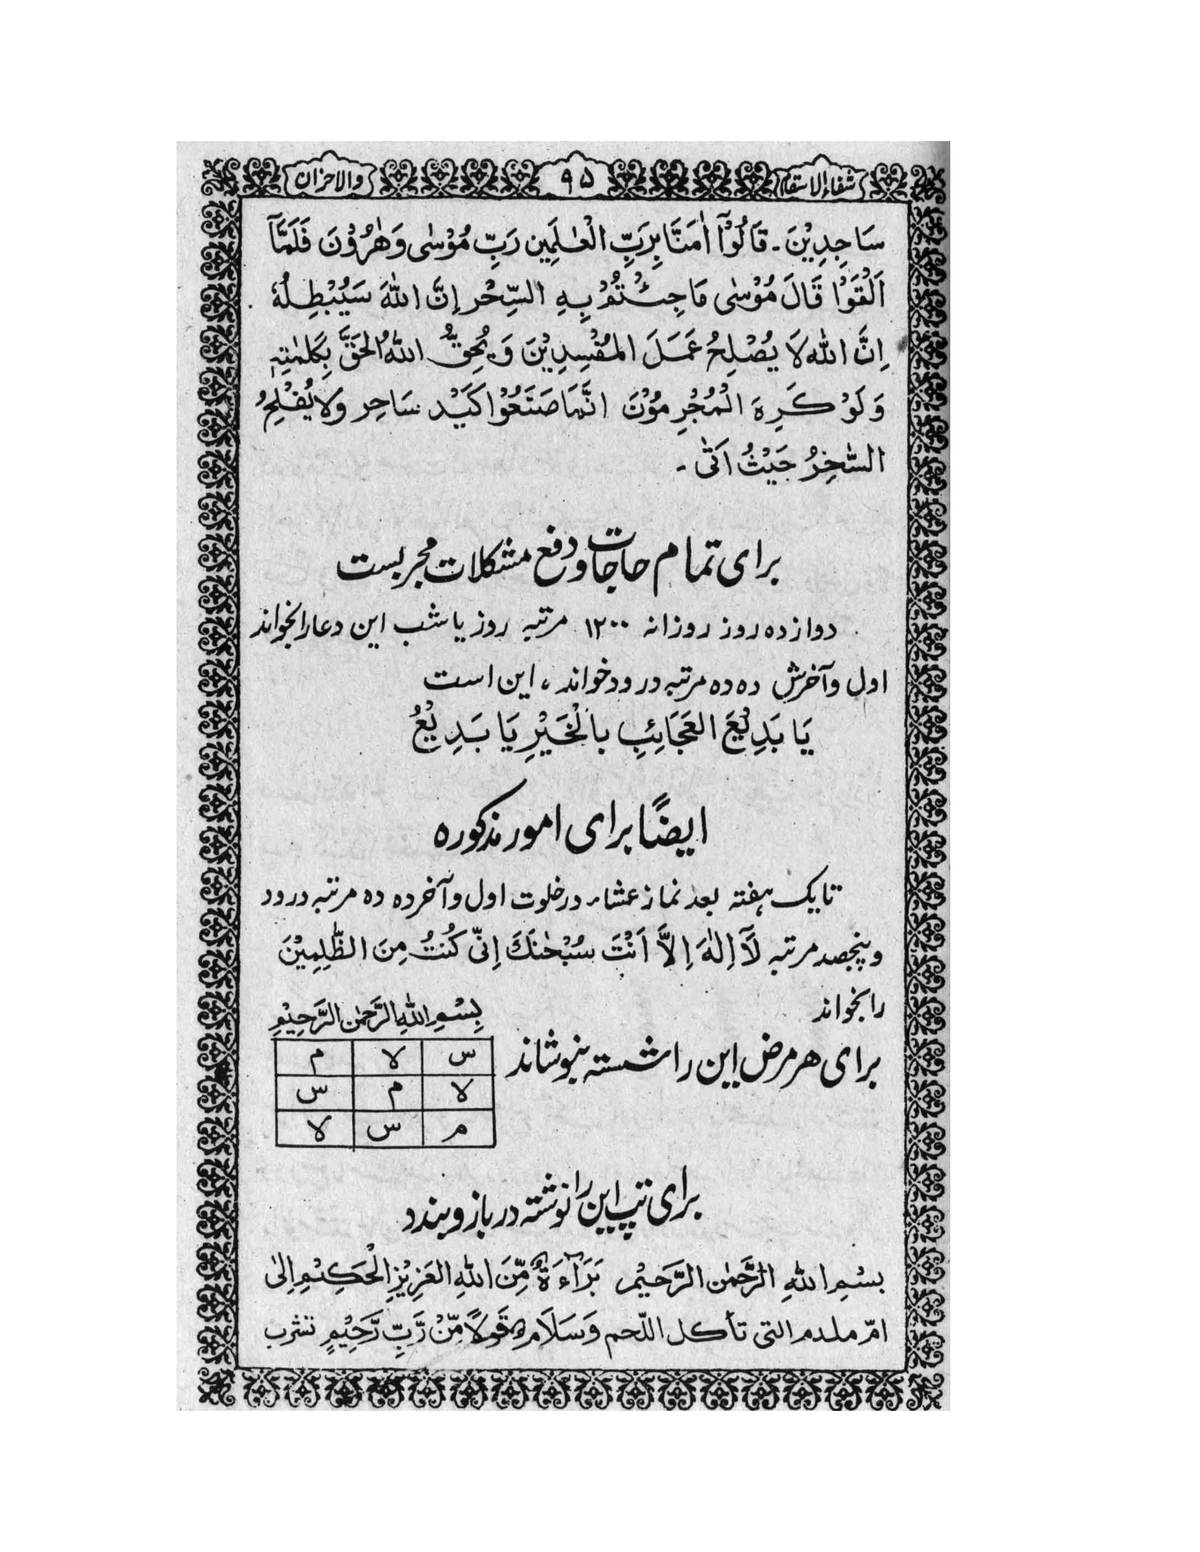 شفاء الاسقام ۹۵ والاحزان
سَاجِدِيْنَ۔ قَالُوْٓا اٰمَنَّا بِرَبِّ الْعٰلَمِين رَبِّ مُوْسٰى وَهٰرُوْنَ فَلَمَّآ
اَلْقَوْا قَالَ مُوْسٰى مَا جِئْتُمْ بِهِ السِّحْر اِنَّ اللهَ سَيُبْطِلُهٗ
اِنَّ اللهَ لَا يُصْلِحُ عَمَلَ الْمُفْسِدِيْنَ وَيُحِقُّ اللهُ الْحَقَّ بِكَلِمٰتِهٖ
وَلَوْ كَرِهَ الْمُجْرِمُوْنَ انَّمَا صَنَعُوْا كَيْدُ سَاحِر وَلَا يُفْلِحُ
السّٰحِرُ حَيْثُ اَتٰى ۔
برای تمام حاجات و دفع مشکلات مجربست
دوازده روز روزانه ۱۲۰۰ مرتبه روز یا شب این دعا را بخواند
اول و آخرش ده ده مرتبه درود خواند، این است
يَا بَدِيْعَ العَجَائِبِ بِالْخَيْرِ يَا بَدِيْعُ
ایضًا برای امور مذکوره
تا یک هفته بعد نماز عشاء در خلوت اول و آخر ده ده مرتبه درود
و پنجصد مرتبه لَآ اِلٰهَ اِلَّا اَنْتَ سُبْحٰنَكَ اِنِّىْ كُنْتُ مِنَ الظّٰلِمِيْنَ
را بخواند
برای هر مرض این را شسته بنوشاند
بِسْمِ اللهِ الرَّحْمٰنِ الرَّحِيْمِ
س لا م
لا م س
م س لا
برای تپ این را نوشته در بازو بندد
بِسْمِ اللهِ الرَّحْمٰنِ الرَّحِيْمِ بَرَآءَةٌ مِّنَ اللهِ العَزِيْزِ الْحَكِيْمِ اِلىٰ
امّ ملدم التى تأكل اللّحم وَسَلَامٌ قَوْلًا مِّنْ رَّبٍّ رَّحِيْمٍ تشرب